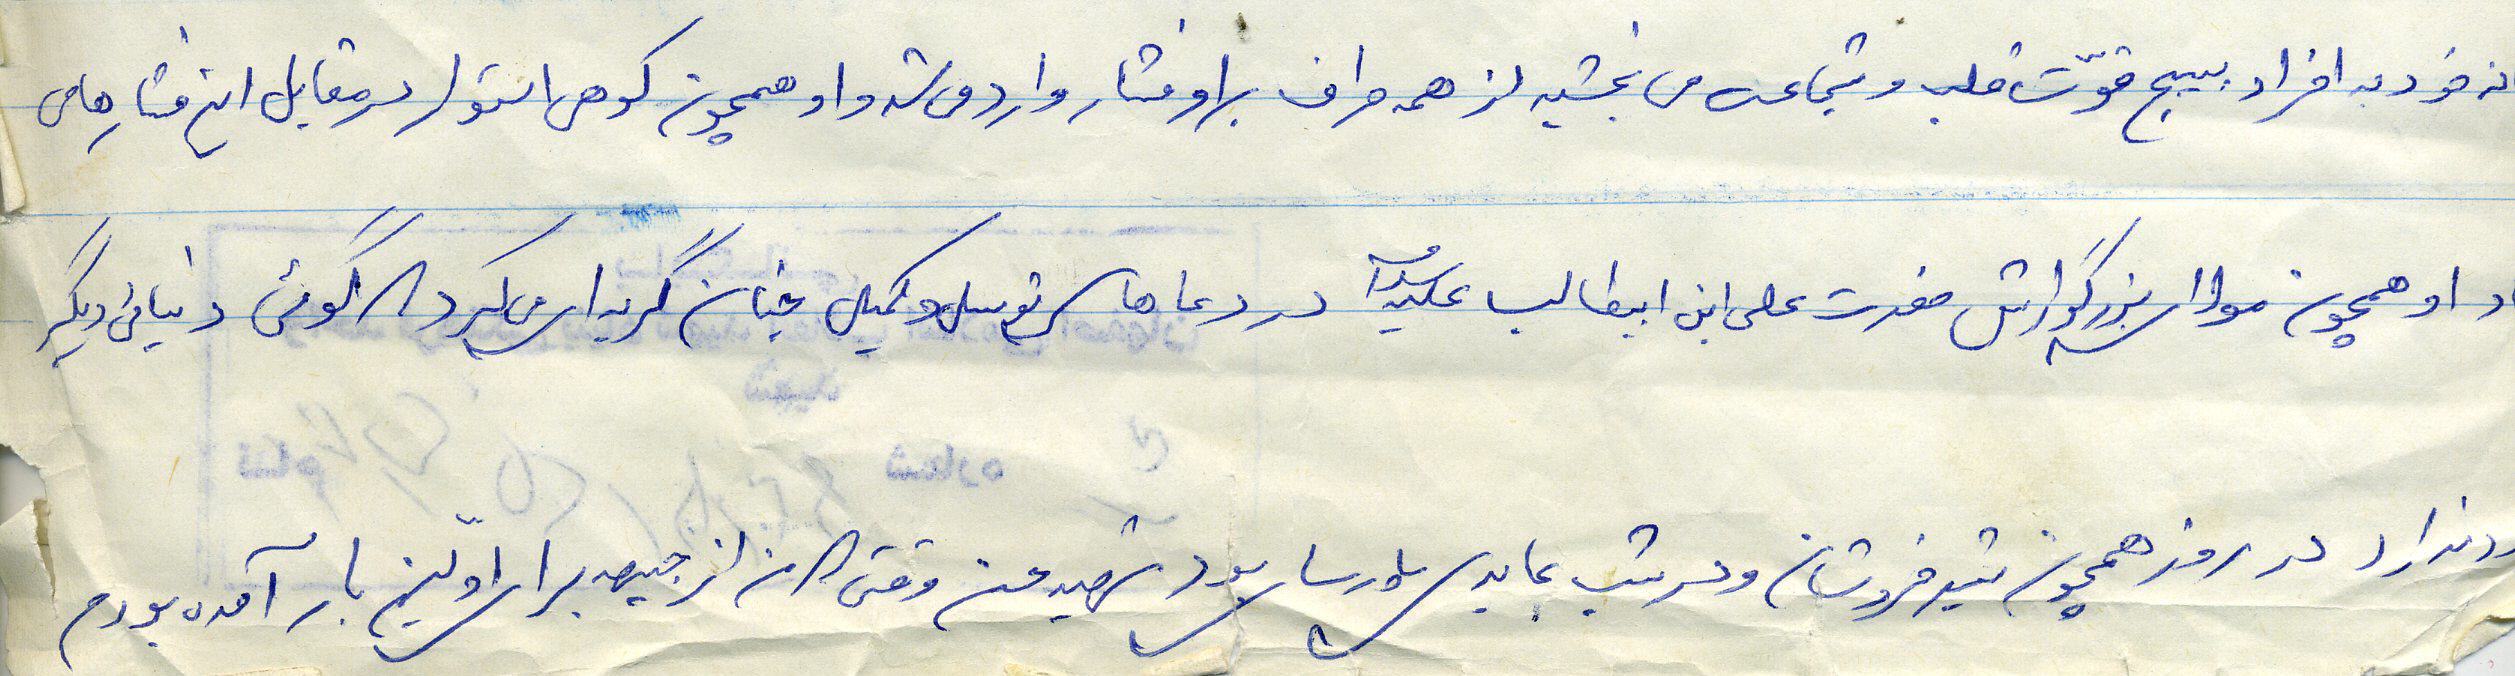 خود به افراد بسیج قوّت قلب و شجاعت می بخشید از همه طرف بر او فشار وارد می شد و او همچون کوهی استوار در مقابل این فشارهای
او همچون مولای بزرگوارش حضرت علی ابن ابیطالب علیه السلام در دعاهای توسل و کمیل چنان گریه ای میکرد که گوئی دنیائی دیگر
ندارد در روز همچون شیر خروشان و در شب عابدی پارسا بود شهید من وقتی که من از جبهه برای اوّلین بار آمده بودم
شماره